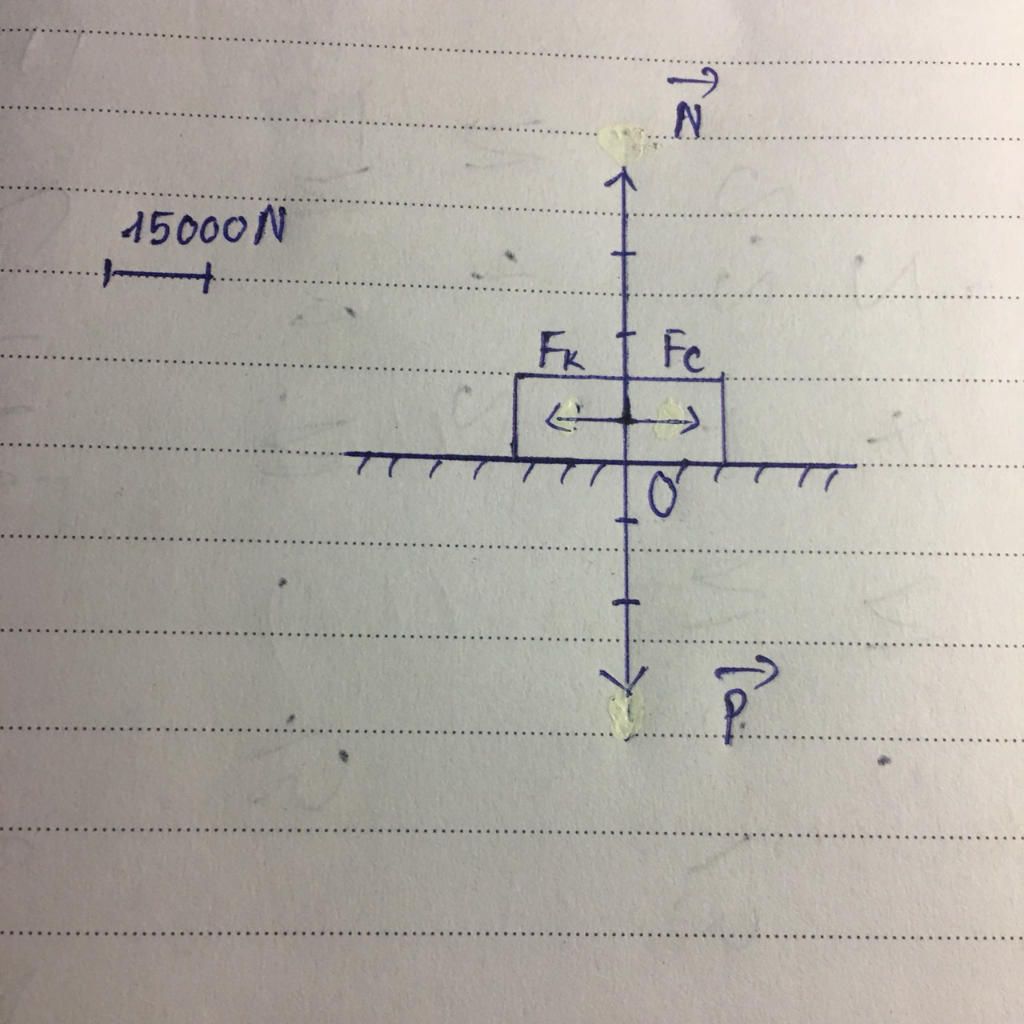 N
15000N
Fk Fc
O
P